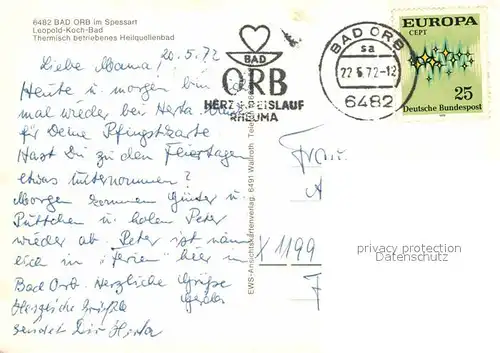 6482 BAD ORB im Spessart
Leopold-Koch-Bad
Thermisch betriebenes Heilquellenbad
20.5.72
Liebe Mama!
Heute u morgen bin ich
mal wieder bei Herta.
für Deine Pfingstkarte
Hast Du zu den Feiertagen
etwas unternommen?
Morgen kommen Günter u
Püttchen u holen Peter
wieder ab. Peter ist näm
lich in "Ferien" hier in
Bad Orb. Herzliche Grüße
Gerda
Herzliche Grüße
sendet Dir Herta
BAD
ORB
HERZ KREISLAUF
RHEUMA
BAD ORB
sa
22.5.72-12
6482
EUROPA
CEPT
25
Deutsche Bundespost
EWS-Ansichtskartenverlag, 6491 Wallroth,
Frau
A
X 1199
F
privacy protection
Datenschutz